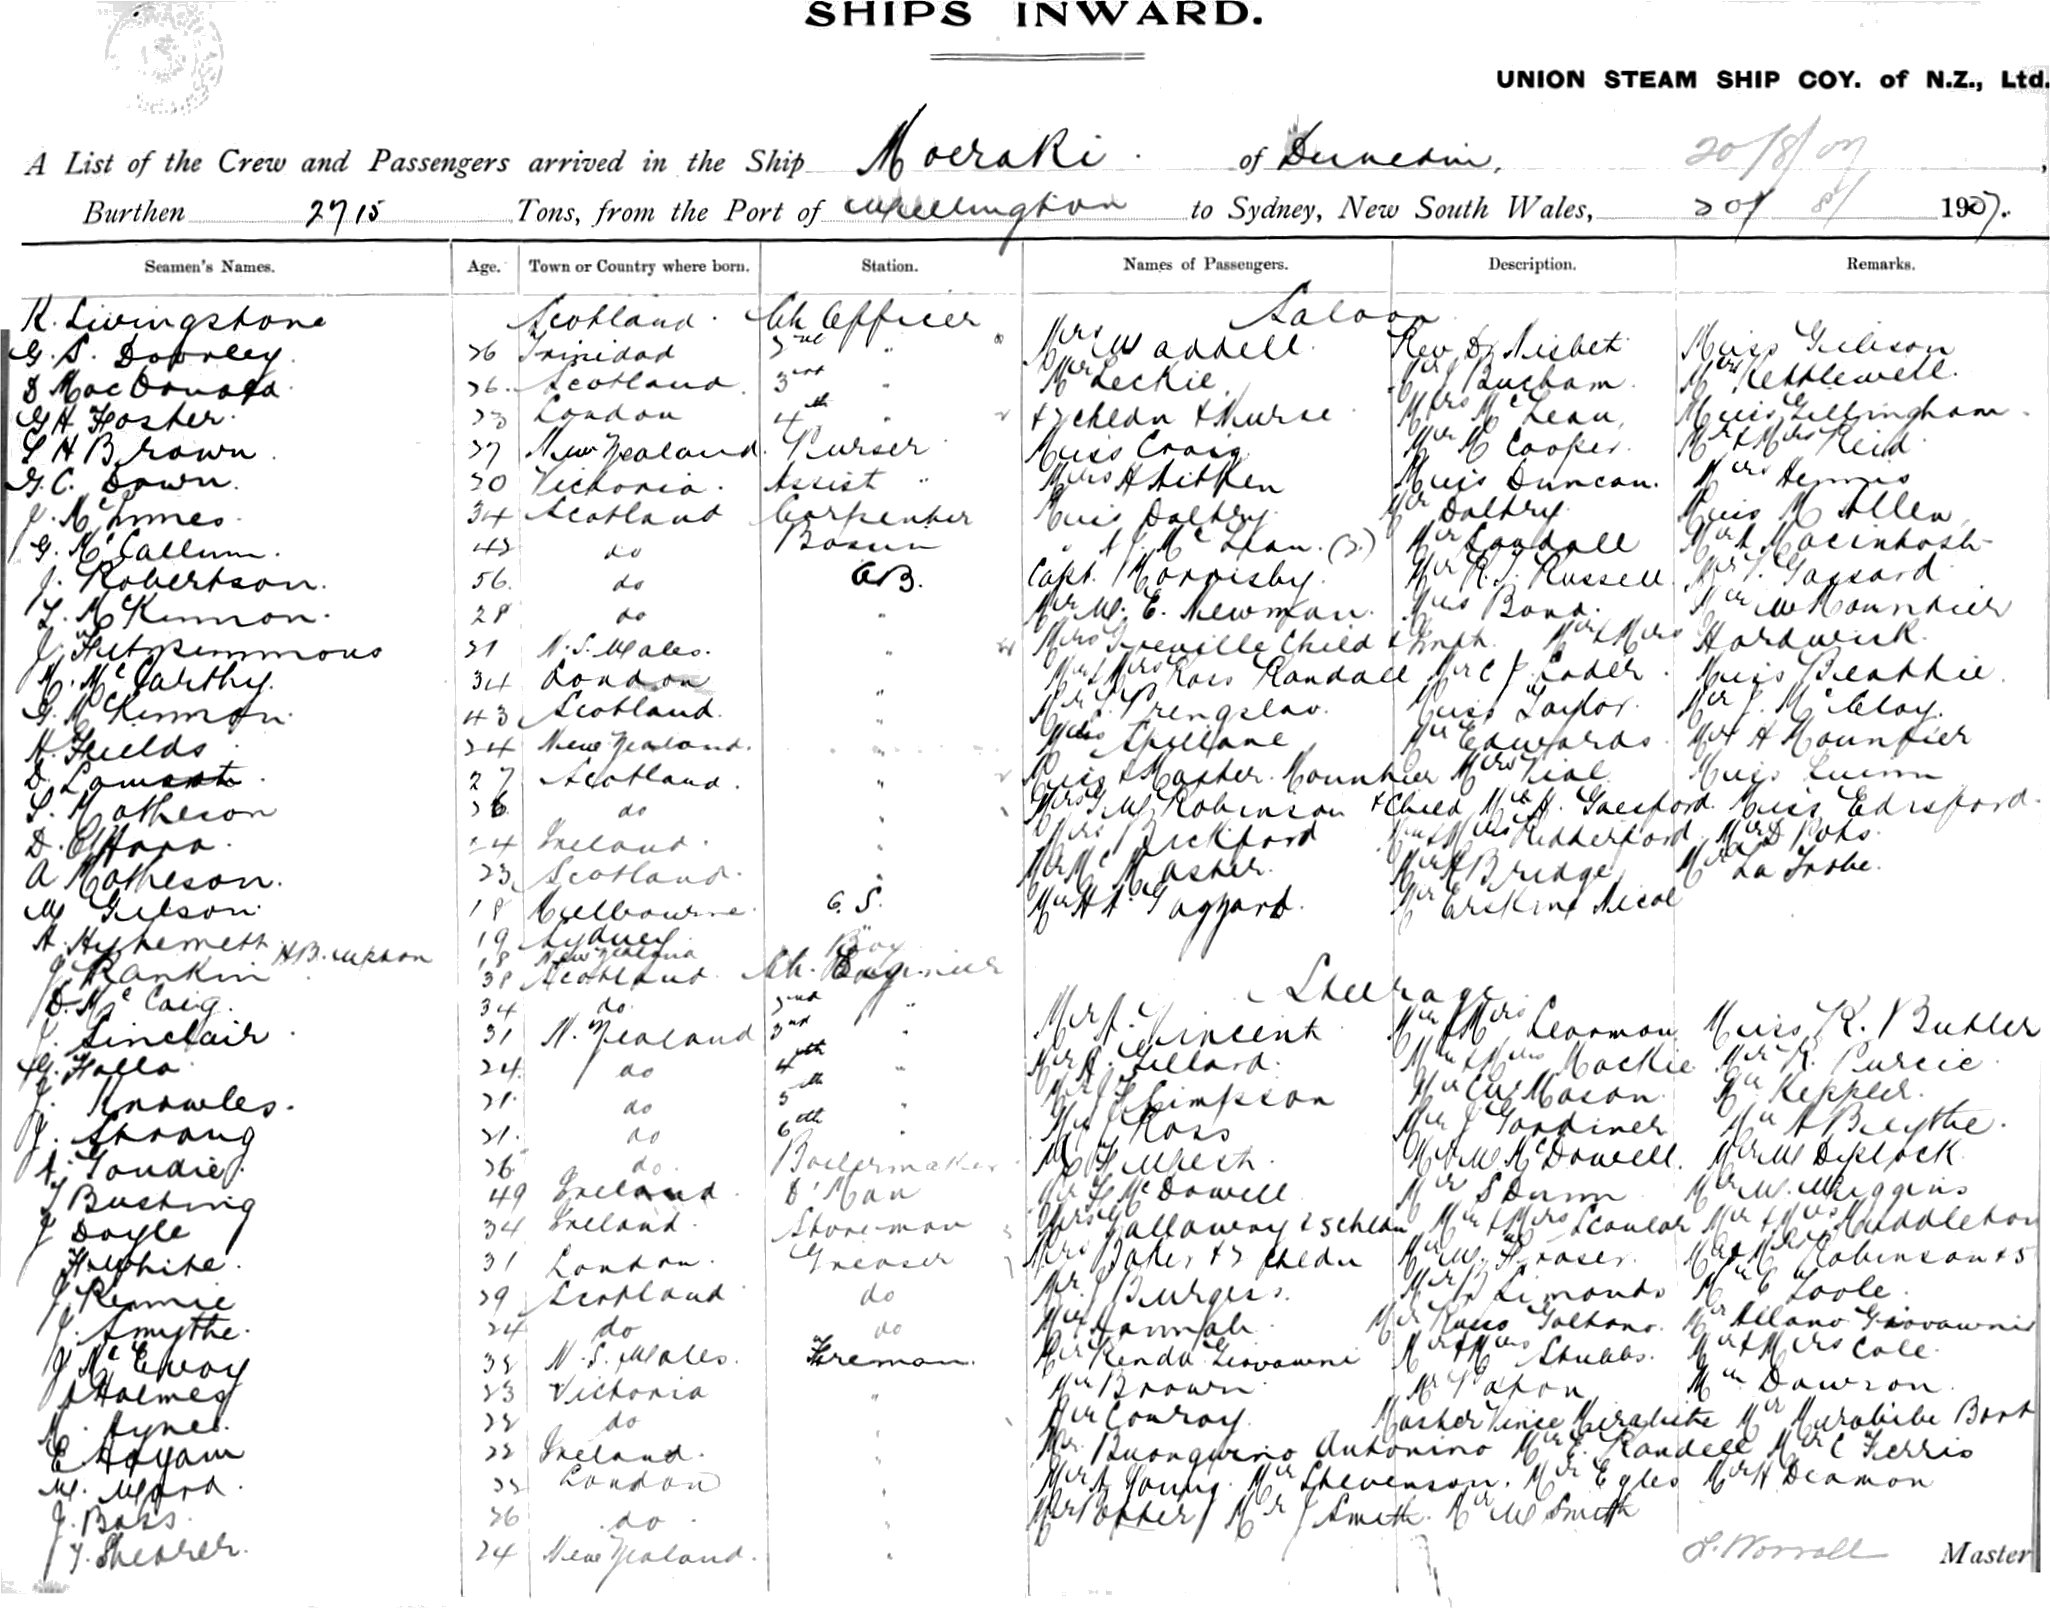 SHIPS INWARD.
UNION STEAM SHIP COY. of N.Z., Ltd.
A List of the Crew and Passengers arrived in the Ship Moeraki. of Dunedin, 20/8/07,
Burthen 2715 Tons, from the Port of Wellington to Sydney, New South Wales, 20/ 8/ 1907.
Seamen's Names. Age. Town or Country where born. Station. Names of Passengers. Description. Remarks.
Saloon
K. Livingstone Scotland. Ch Officer
G. S. Doorley. 26 Trinidad 2nd " Mrs Waddell. Rev Dr Nisbet Miss Gibson
D MacDonald 26. Scotland. 3rd " Mr Leckie, Mr J Bucham. Mrs Kettlewell.
G H Foster. 23 London 4th " & 2 chldn & Nurse Mrs McLean, Miss Gillingham.
S H Brown. 27 New Zealand. Purser Miss Craig Mr M Cooper. Mr & Mrs Reid
G. C. Down. 20 Victoria. Assist " Mrs H Aitken Miss Duncan. Mrs Hennis
J. McInnes. 34 Scotland Carpenter Miss Daltry. Mr Daltry. Miss M Allen
G. McCallum. 42 do Bosun " A J. McLean. (2) Mr Randall Mr A Macintosh
J. Robertson. 56. do A.B. Capt. Hornisby. Mr R. J. Russell.
L. McKinnon. 28 do " Mr W. E. Newman. Mrs Bond. Mr W Mountier
J. Fitzsimmons 21 N. S. Wales. " Mrs Greville Child & Infh. Mr & Mrs Hardwick.
M. McCarthy. 34 London " Mr & Mrs Ross Randall Mr C J. Lader. Miss Beattie.
G. McKinnon. 43 Scotland. " Mr S. Prengslau. Miss Taylor. Mr J. McClay.
H. Fields 24 New Zealand. " Miss Spillane Mr Edwards. Mr H Mountier
D. Lamont. 27 Scotland. " Miss & Master Mountier Mrs Vial Miss Quinn
S. Matheson 26 do " Mrs G W Robinson & Child Mr H. Gaesford. Miss Edisford.
D. O'Hara. 24 Ireland. " Mrs Bickford Mr & Mrs Rutherford. Mr D Pots.
A Matheson. 23 Scotland. " Mr McMaster. Mr H Bridge Mr La Trobe.
W Gilson. 18 Melbourne. O. S. Mr H A. Taggart. Mr Erskine Nicol
A. 19 Sydney. "
H B. Upton 18 New Zealand Boy
J. Rankin 38 Scotland. Ch. Engineer
Steerage
D. McCaig. 34 do. 2nd "
J. Sinclair. 31 N. Zealand 3rd " Mr A. Vincent Mr & Mrs Learmon Miss K. Butler
G. Falla. 24. do 4th " Mr A. Gillard. Mr & Mrs Mackie Mr R. Purcie
J. Knowles. 21. do 5th " Mr J F Simpson Mr CW Mason. Mr Keppler.
J. Strong 21. do 6th " Mr J Ross Mr J Gardiner Mr A Blythe.
A. Goudie. 26. do. Boilermaker Mr F West. Mr W McDowell. Mr W Diplock.
T Bushing 49 Ireland. D'Man Mr F McDowell Mr S Dunn Mr W. Wiggins
J Doyle 34 Ireland. Storeman Mrs Gallaway & 5 chldn Mr & Mrs Scoular Mr & Mrs Middleton
F White. 31 London. Greaser Mrs Baker & 2 chldn Mr W. Fraser. Mr & Mrs Robinson & 5
J. Rennie 29 Scotland do Mr J Burgess. Mr P Simonds Mr C Toole.
J. Smythe. 24 do do Mr Hannah Mr Russo Galtano. Mr Allano Giovawnie
J McEvoy 32 N. S. Wales. Fireman. Mr Renda Giovawni Mr & Mrs Stubbs. Mr & Mrs Cole.
J Holmes 23 Victoria " Mr Brown. Mr Paton Mr Dawson.
M. Hynes. 22 do " Mr Conroy. Master Vince Mirabite Mr Murabibe Bart
E Hogan 22 Ireland. " Mr. Buongurno Antonino Mr E. Randell Mr C Ferris
W. Ward. 22 London " Mr A Young. Mr Stevenson. Mr Eyles Mr H Deamon
J. Bass. 26 do. " Mr Potter Mr J Smith. Mr W Smith
T. Shearer. 24 New Zealand. "
S. Worrall Master